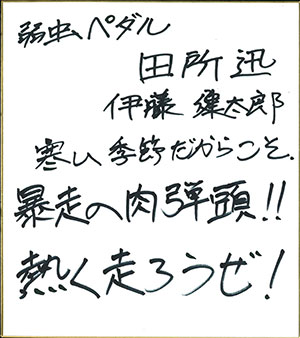 弱虫ペダル
田所迅
伊藤健太郎
寒い季節だからこそ、
暴走の肉弾頭!!
熱く走ろうぜ!